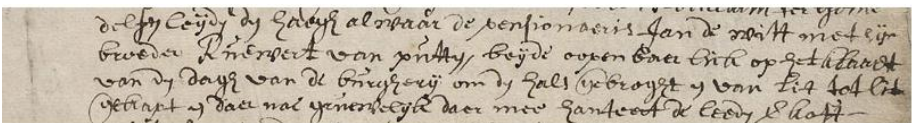 delff leyden den haegh alwaar de pensionaeris Jan de witt met sijn
broeder Ruewert van putten, beyde oopenbaer lick op het klaerst
van den dagh van de burgherij om den hals gebroght en van lit tot lit
gekapt en daer nae gruewelijck daer mee hanteert de leeden